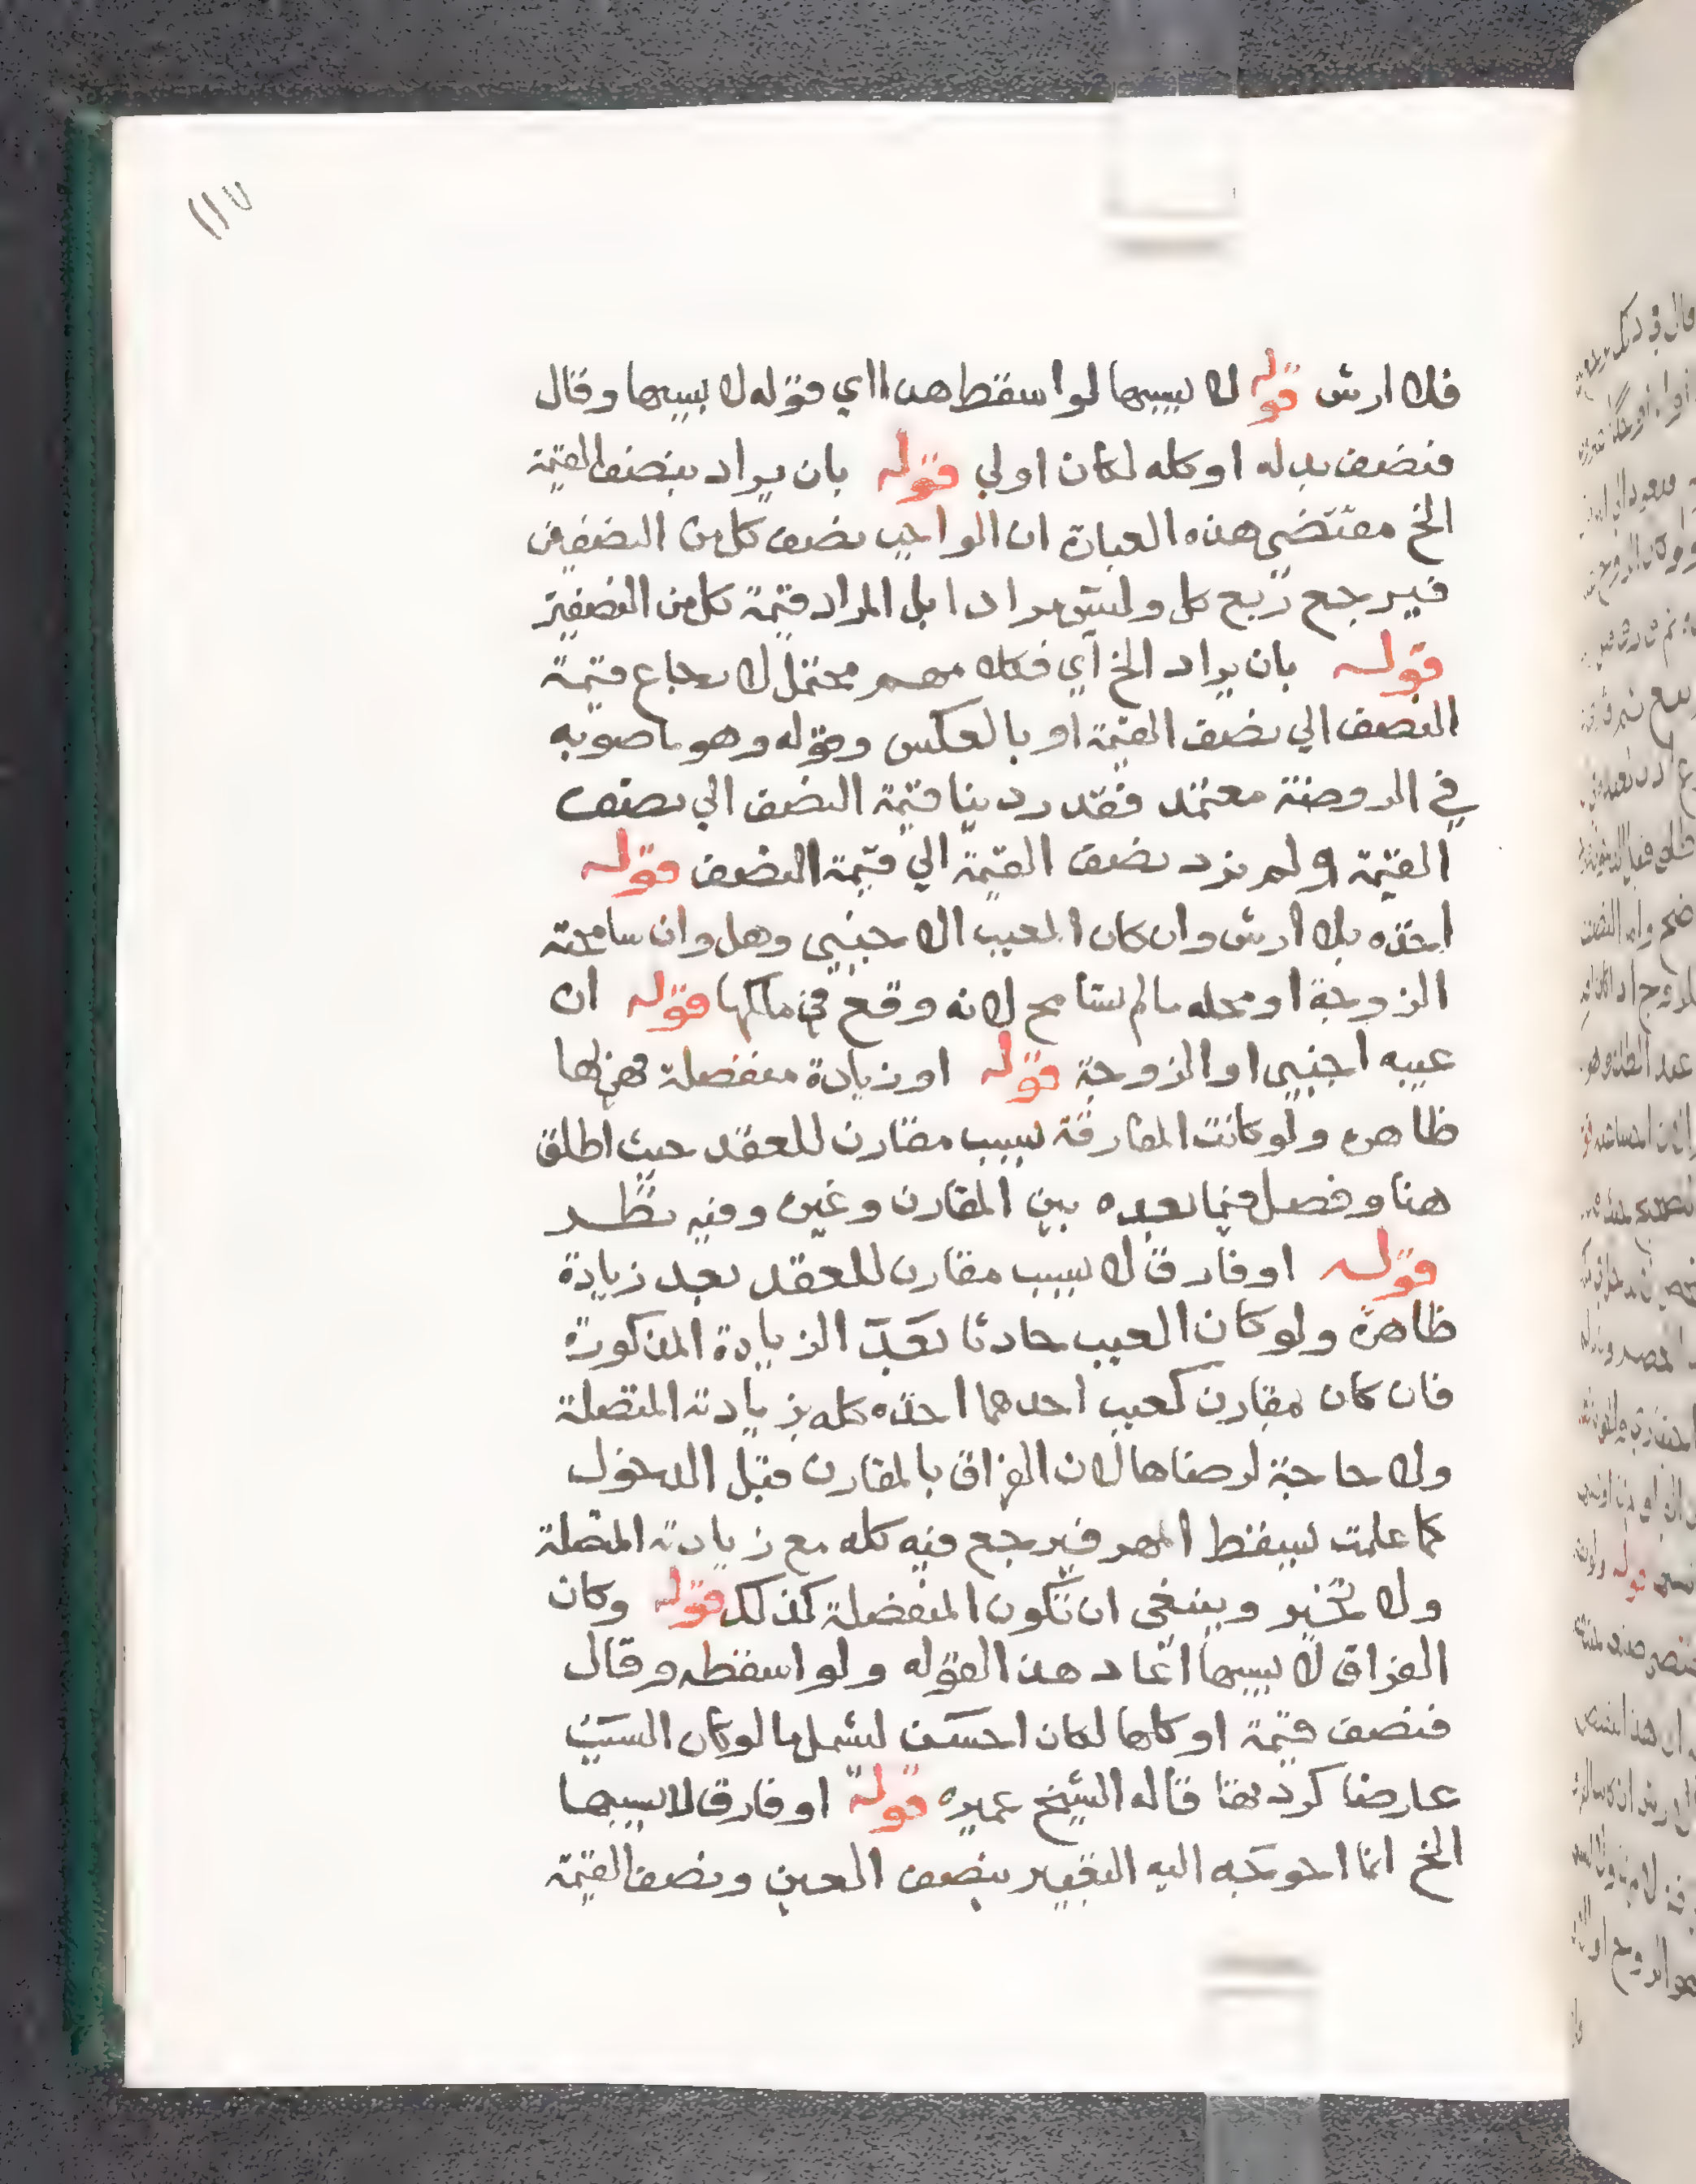 ١١٧
فلا ارش قوله لا بسببها لو اسقط هذا اي قوله لا بسببها وقال
فنصف بدله او كله لكان اولي قوله بان يراد بنصف القيمة
الخ مقتضي هذه العبارة ان الواجب نصف كل من النصفين
فيرجع ربع كل وليس مرادا بل المراد قيمة كل من النصفين
قوله بان يراد الخ اي فكلامهم محتمل لارجاع قيمة
النصف الي نصف القيمة او بالعكس وقوله وهو ما صوبه
في الروضة معتمد فقد رددنا قيمة النصف الي نصف
القيمة ولم نرد نصف القيمة الي قيمة النصف قوله
اخذه بلا ارش وان كان المعيب الاجنبي وهل وان سامحته
الزوجة او محله ما لم تسامح لانه وقع في ملكها قوله ان
عيبه اجنبي او الزوجة قوله او زيادة منفصلة فهي لها
ظاهره ولو كانت المفارقة بسبب مقارن للعقد حيث اطلق
هنا وفصل فيما بعده بين المقارن وغيره وفيه نظر
قوله او فارق لا بسبب مقارن للعقد بعد زيادة
ظاهرة ولو كان العيب حادثا بعد الزيادة المذكورة
فان كان مقارن كعيب احدهما اخذه كله بزيادته المتصلة
ولا حاجة لرضاها لان الفراق بالمقارن قبل الدخول
كما علمت يسقط المهر فيرجع فيه كله مع زيادته المتصلة
ولا تخير وينبغي ان تكون المنفصلة كذلك قوله وكان
الفراق لا بسببها اعاد هذا القوله ولو اسقطه وقال
فنصف قيمة او كلها لكان احسن ليشمل ما لو كان السبب
عارضا كردتها قاله الشيخ عميره قوله او فارق لا بسببها
الخ انما احوجه اليه التعبير بنصف العين ونصف القيمة